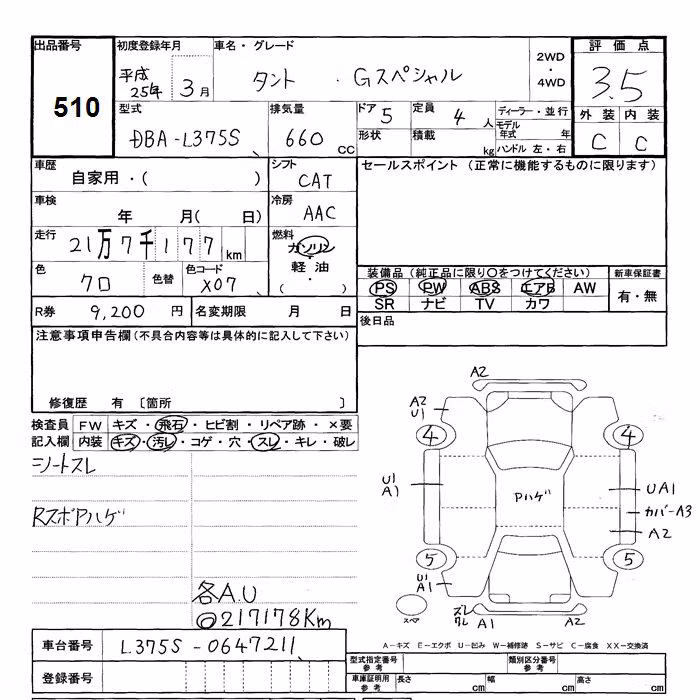 出品番号 初度登録年月 車名・グレード 評価点
510
平成25年 3月 タント ・ Gスペシャル 2WD・4WD 3.5
型式 排気量 ドア 5 定員 4 人 ディーラー・並行 外装 内装
DBA-L375S 660 CC 形状 積載 kg モデル年式 年 C C
ハンドル 左・右
車歴 シフト セールスポイント (正常に機能するものに限ります)
自家用・( ) CAT
車検 冷房
年 月( 日) AAC
走行 燃料
21万7千177km ガソリン・軽油・( )
色 色替 色コード 装備品 (純正品に限り○をつけてください) 新車保証書
クロ X07 PS PW ABS エアB AW 有・無
SR ナビ TV カワ
R券 9,200 円 名変期限 月 日 後日品
注意事項申告欄 (不具合内容等は具体的に記入して下さい)
修復歴 有 〔箇所 〕
検査員 FW キズ・飛石・ヒビ割・リペア跡・×要
記入欄 内装 キズ・汚レ・コゲ・穴・スレ・キレ・破レ
シートスレ
RスポAハゲ
各A.U
◎217178Km
A2
A2
U1
4
4
U1
A1
Pハゲ
UA1
カバーA3
A2
5
5
U1
A1
スペア
ズレ
ワレ
A1
A2
車台番号 L375S-0647211
A-キズ E-エクボ U-凹み W-補修跡 S-サビ C-腐食 XX-交換済
登録番号
型式指定番号 参考 類別区分番号 参考
車庫証明用 参考 長さ cm 幅 cm 高さ cm